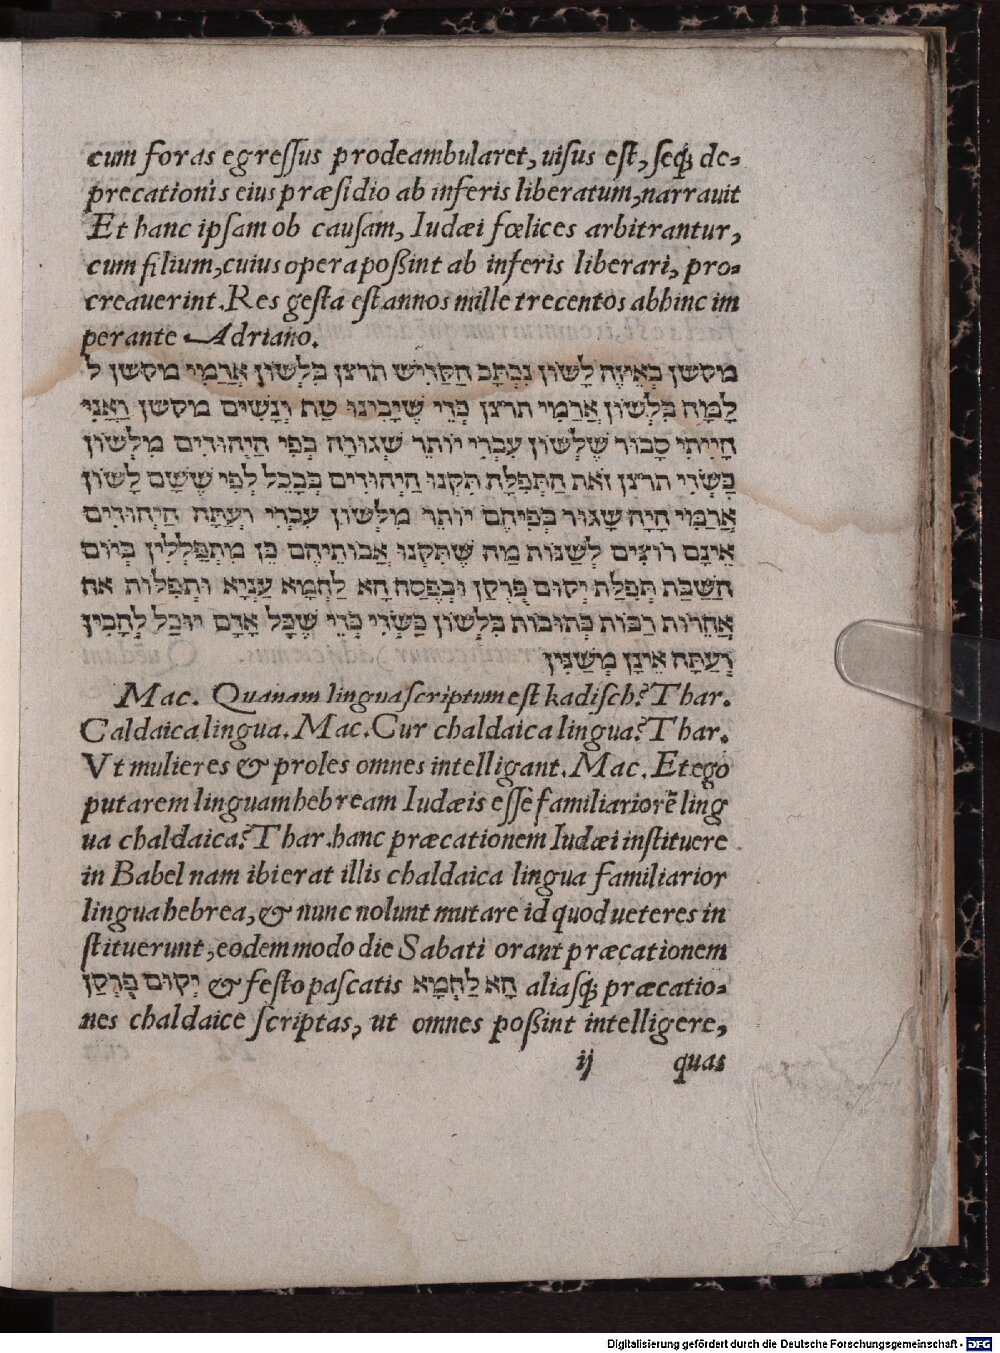 cum foras egreſſus prodeambularet, uiſus eſt, ſeq́; de-
precationis eius præſidio ab inferis liberatum, narrauit
Et hanc ipſam ob cauſam, Iudæi fœlices arbitrantur,
cum filium, cuius opera poßint ab inferis liberari, pro-
creauerint. Res geſta eſt annos mille trecentos abhinc im
perante Adriano.
מקשן בְּאֵיזֶה לָשׁוֹן נִכְתַּב הַקַּדִּישׁ תרצן בִּלְשׁוֹן אֲרַמִי מקשן ל
לָמָּה בִּלְשׁוֹן אֲרַמִי תרצן כְּדֵי שֶׁיָבִינוּ טַף וְנָשִׁים מקשן וַאֲנִי
הָיִיתִי סָבוּר שֶׁלְשׁוֹן עִבְרִי יוֹתֵר שְׁגוּרָה בְּפִי הַיְהוּדִים מִלְשׁוֹן
כַּשְׂדִּי תרצן זֹאת הַתְּפִלָּת תִּקְנוּ הַיְהוּדִים בְּבָבֶל לְפִי שֶׁשָׁם לָשׁוֹן
אֲרַמִּי הָיָה שָׁגוּר בְּפִיהֶם יוֹתֵר מִלְּשׁוֹן עִבְרִי וְעַתָּה הַיְהוּדִים
אֵינָם רוֹצִים לְשַׁנּוֹת מַה שֶׁתִּקְנוּ אֲבוֹתֵיהֶם כֵּן מִתְפַּלְלִין בְּיוֹם
הַשַּׁבָּת תְּפִלַּת יְקוּם פֻּרְקָן וּבְפֶסַח הָא לַחְמָא עַנְיָא וּתְפִלּוֹת אח
אֲחֵרוֹת רַבּוֹת כְּתוּבוֹת בִּלְשׁוֹן כַּשְׂדִּי כְּדֵי שֶׁכָּל אָדָם יוּכַל לְהָבִין
וְעַתָּה אֵינָן מְשַׁנִּין
Mac. Quanam lingua ſcriptum eſt kadiſch? Thar.
Caldaica lingua. Mac. Cur chaldaica lingua? Thar.
Vt mulieres & proles omnes intelligant. Mac. Et ego
putarem linguam hebream Iudæis eſſe familiariorē ling
ua chaldaica? Thar. hanc præcationem Iudæi inſtituere
in Babel nam ibi erat illis chaldaica lingua familiarior
lingua hebrea, & nunc nolunt mutare id quod ueteres in
ſtituerunt, eodem modo die Sabati orant præcationem
יְקוּם פֻּרְקָן & feſto paſcatis הָא לַחְמָא aliasq́; præcatio-
nes chaldaice ſcriptas, ut omnes poßint intelligere,
ij quas
Digitalisierung gefördert durch die Deutsche Forschungsgemeinschaft - DFG